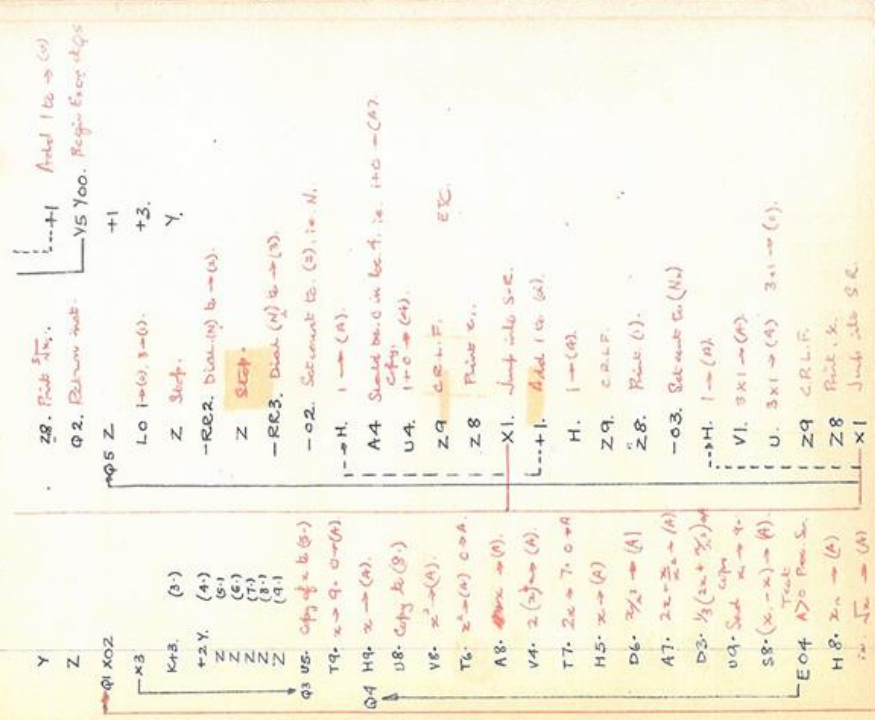 Y
Z
Q1 X02
X3
K+3. (3.)
+2Y. (4.)
Z (5.)
Z (6.)
Z (7.)
Z (8.)
Z (9.)
Q3 U5. Copy of x to (5.)
T9. x → 9. 0→(A).
Q4 H9. x → (A).
U8. Copy to (8.)
V8. x² → (A).
T6. x² → (A) 0→A.
A8. x → (A).
V4. 2(x) → (A).
T7. 2x → 7. 0→A
H5. x → (A)
D6. x/x² → (A)
A7. 2x + x/x² → (A)
D3. 1/3 (2x + x/x²) → A
U9. Copy x₁ → 9.
S8. (x₁ - x) → (A).
Test
E04 A>0
H8. xₙ → (A)
→ (A)
Z8. Print
Q2. Return inst.
Q5 Z
L0 1→(0). 3→(1).
Z Stop.
-RR2. Dial (N) to → (2).
Z Stop.
-RR3. Dial (N) to → (3).
-02. Set count to (2). i.e. N.
H. 1 → (A).
A4 Should be 0 in loc 4. i.e. 1+0 → (A).
U4. Copy. 1+0 → (4).
Z9 C.R.L.F. ETC.
Z8 Print x₁.
X1. Jump into S.R.
+1. Add 1 to (2).
H. 1 → (A).
Z9. C.R.L.F.
Z8. Print (1).
-03. Set count to (N₂)
H. 1 → (A).
V1. 3×1 → (A).
U. 3×1 → (A) 3×1 → (0).
Z9 C.R.L.F.
Z8 Print. x.
X1 Jump into S.R.
+1 Add 1 to → (0)
V5 Y00. Begin Exec. @ Q5
+1
+3.
Y.